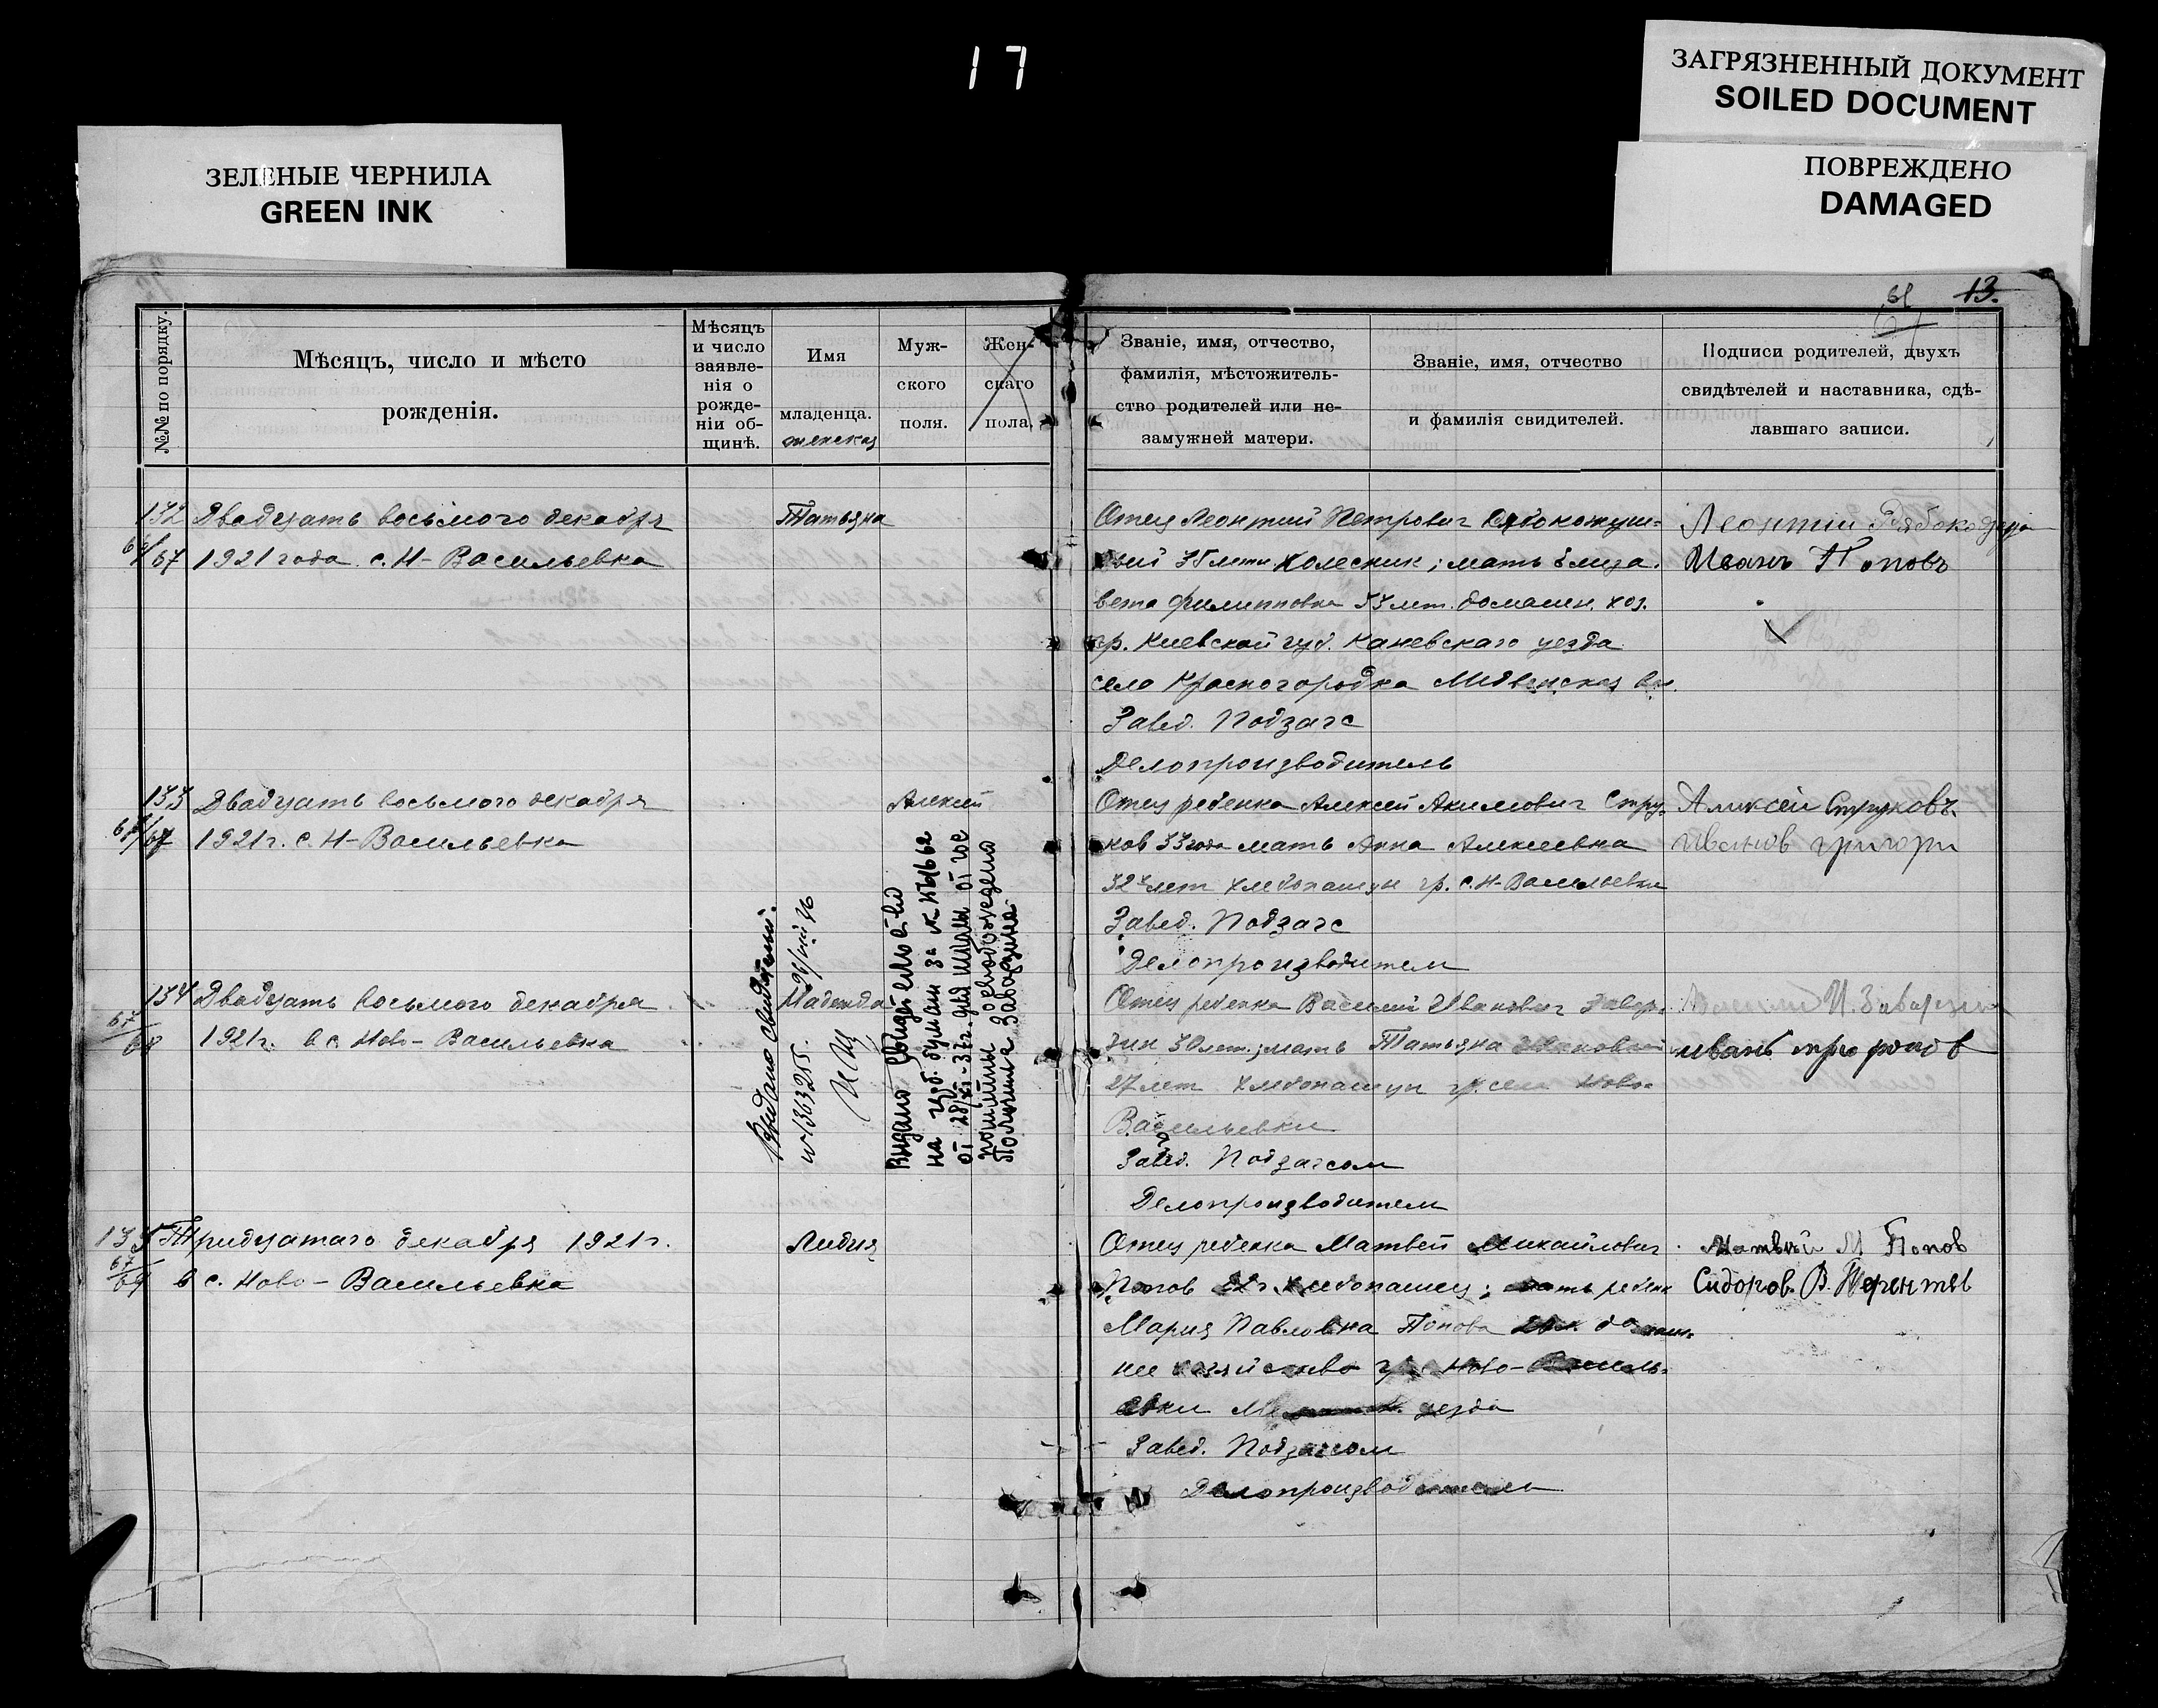 17
ЗАГРЯЗНЕННЫЙ ДОКУМЕНТ
SOILED DOCUMENT
ПОВРЕЖДЕНО
DAMAGED
ЗЕЛЕНЫЕ ЧЕРНИЛА
GREEN INK
13.
№№ по порядку.
Мѣсяцъ, число и мѣсто
рожденія.
Мѣсяцъ
и число
заявле-
нія о
рожде-
ніи об-
щинѣ.
Имя
младенца.
женская
Муж-
ского
поля.
Жен-
скаго
пола.
Званіе, имя, отчество,
фамилія, мѣстожитель-
ство родителей или не-
замужней матери.
Званіе, имя, отчество
и фамилія свидителей.
Подписи родителей, двухъ
свидѣтелей и наставника, сдѣ-
лавшаго записи.
132 Двадцать восьмого декабря
67 1921 года с. Н-Васильевка
Татьяна
Отец Леонтий Петрович
35 лет. колесник; мать Елиза-
вета Филипповна лет. домашн. хоз.
гр. Киевской губ. Каневскаго уезда
село Красногородка
Завед. Подзагс
Делопроизводитель
Леонтий
Иванъ Поповъ
133 Двадцать восьмого декабря
67 1921 г. с. Н-Васильевка
Алексей
Отец ребенка Алексей Акимович Стру-
ков 33 года мать Анна Алексеевна
32 лет хлебопашцы гр. с. Н-Васильевки
Завед. Подзагс
Делопроизводитель
Алексей Струковъ.
Иванов Григори
134 Двадцать восьмого декабря
67
68 1921 г. в с. Ново-Васильевка
Надежда
Выдано свидѣтель.
Выдано Свидетельство
на губ. бумаги за №
от
пошлины освобождено
Получила Заварзина
Отец ребенка Василий Иванович Завар-
зин 30 лет. мать Татьяна
27 лет хлебопашцы гр. села Ново-
Васильевки
Завед. Подзагсом
Делопроизводитель
Василий И. Заварзин
иванъ
135 Тридцатаго декабря 1921 г.
67
69 в с. Ново-Васильевка
Лидия
Отец ребенка Матвей Михайлович
Попов хлебопашец; мать ребенк
Мария Павловна Попова домаш-
нее хозяйство гр. с. Ново-Василь-
евки уезда
Завед. Подзагсом
Делопроизводитель
Матвей М Попов
Сидоров. В.